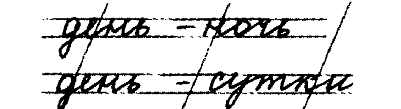 день - ночь
день - сутки